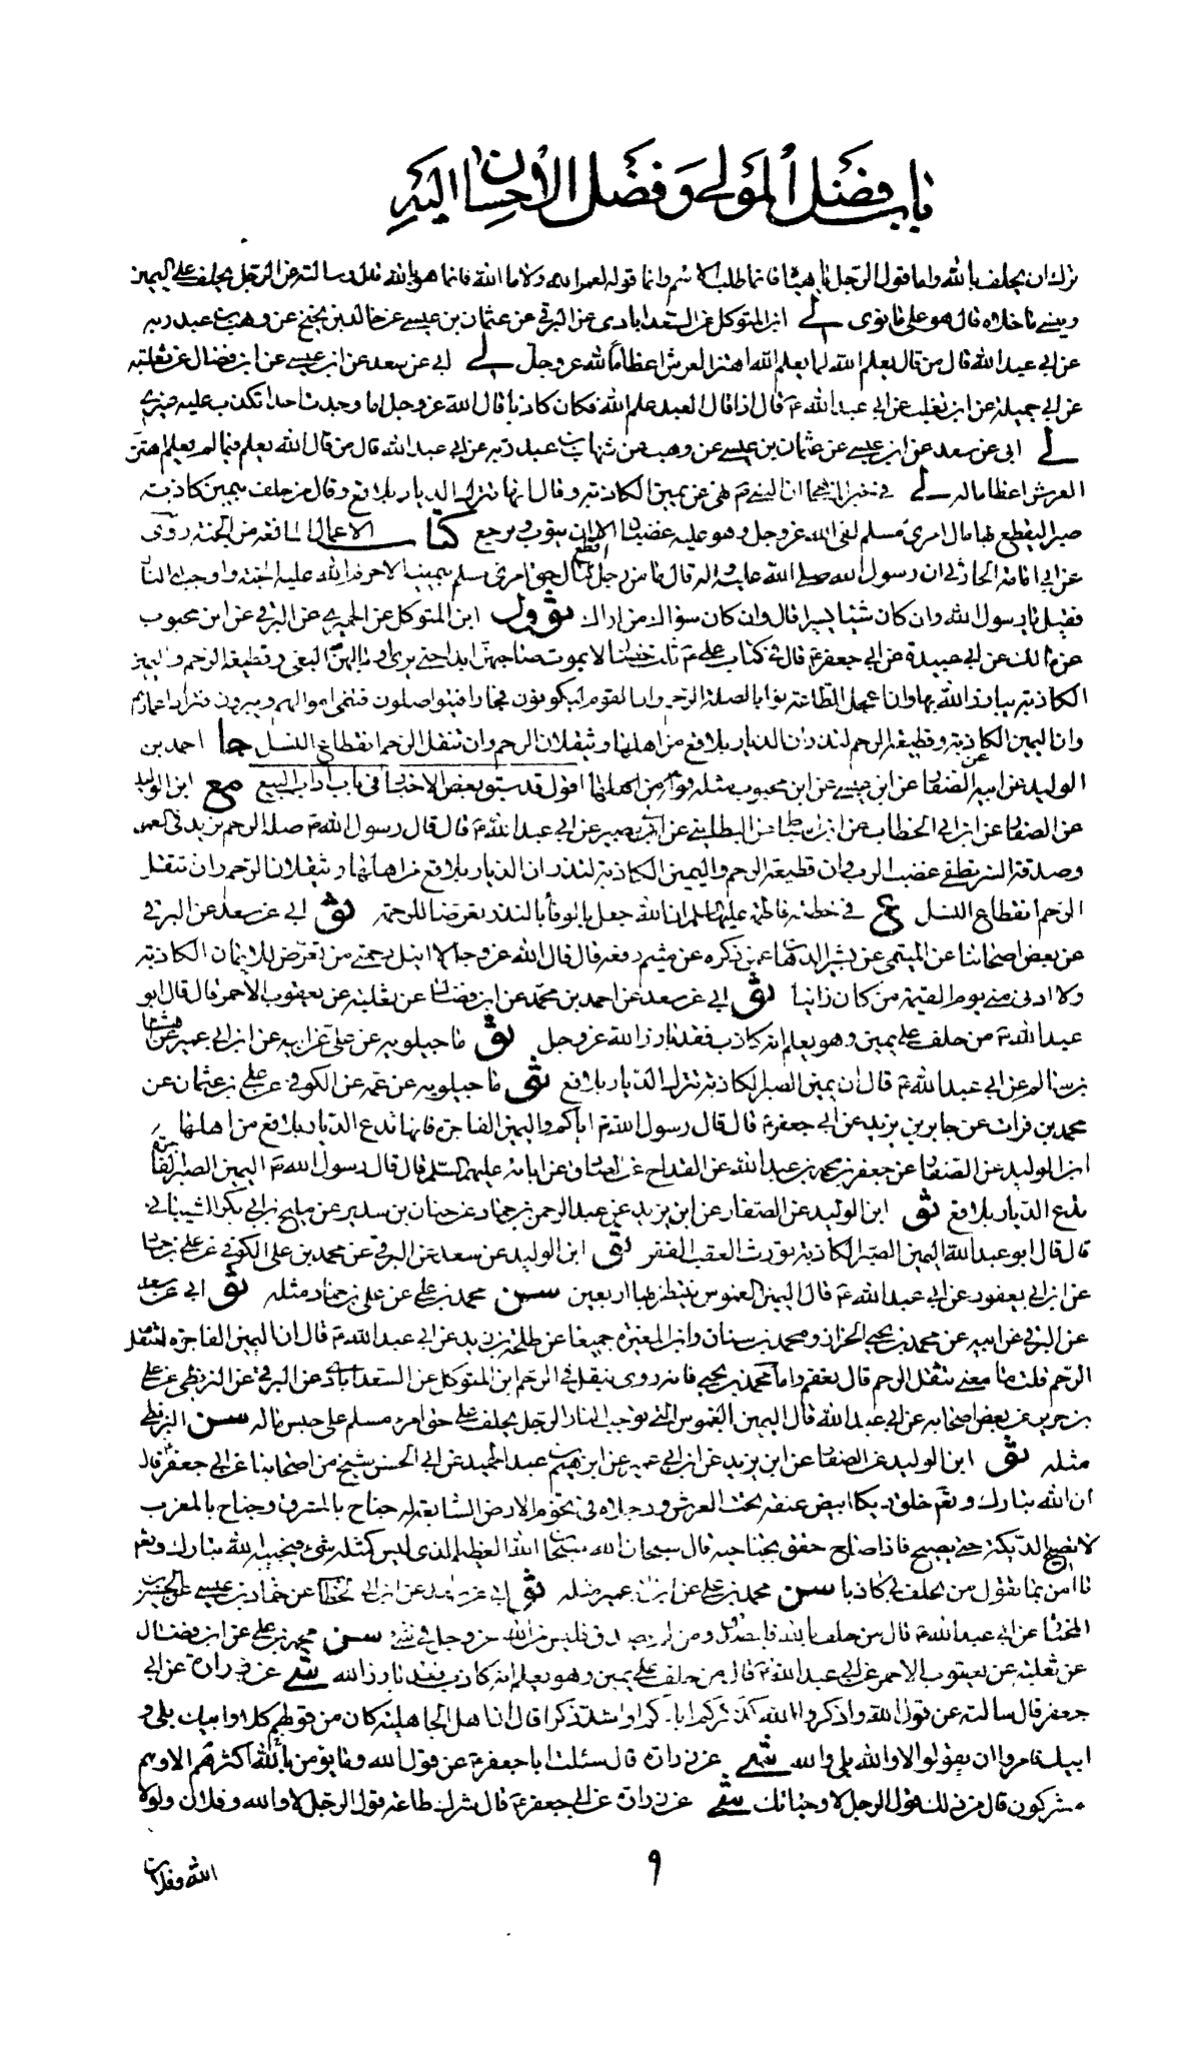 باب فضل المولى وفضل الاحسان اليه
ترك ان يحلف بالله واما قول الرجل يا هناه فانما طلب الاسم واما قوله لعمر الله ولا ها الله فانما هو بالله سالته عن الرجل يحلف على اليمين
وينسى ما خلاه قال هو على ما نوى لى ابن المتوكل عن السعدابادى عن البرقى عن عثمان بن عيسى عن خالد بن نجيح عن وهب بن عبد ربه
عن ابى عبد الله قال من قال يعلم الله لما لم يعلم الله اهتز العرش اعظاما لله عز وجل لى ابى عن سعد عن ابن عيسى عن ابن فضال عن ثعلبة
عن ابى جميلة عن ابن تغلب عن ابى عبد الله ع قال اذا قال العبد علم الله فكان كاذبا قال الله عز وجل اما وجدت احدا تكذب عليه غيرى
لى ابى عن سعد عن ابن عيسى عن عثمان بن عيسى عن وهب عن شهاب بن عبد ربه عن ابى عبد الله قال من قال الله يعلم فيما لم يعلم اهتز
العرش اعظاما له لى فى خبر المناهى ان النبى ص نهى عن يمين الكاذبة وقال انها تترك الديار بلاقع وقال من حلف بيمين كاذبة
صبرا ليقطع بها مال امرئ مسلم لقى الله عز وجل وهو عليه غضبان الا ان يتوب ويرجع كتاب الاعمال المانعة من الجنة روى
عن ابى امامة الحارثى ان رسول الله صلى الله عليه واله قال ما من رجل اقتطع مال امرئ مسلم بيمينه الا حرم الله عليه الجنة واوجب له النار
فقيل يا رسول الله وان كان شيئا يسيرا قال وان كان سواك من اراك ثو ول ابن المتوكل عن الحميرى عن البرقى عن ابن محبوب
عن مالك عن ابى عبيدة عن ابى جعفر ع قال فى كتاب على ع ثلث خصال لا يموت صاحبهن ابدا حتى يرى وبالهن البغى وقطيعة الرحم واليمين
الكاذبة يبارز الله بها وان اعجل الطاعة ثوابا لصلة الرحم وان القوم ليكونون فجارا فيتواصلون فتنمى اموالهم ويبرون فتزاد اعمارهم
وان اليمين الكاذبة وقطيعة الرحم لتذران الديار بلاقع من اهلها وتثقلان الرحم وان تثقل الرحم انقطاع النسل جا احمد بن
الوليد عن ابيه عن الصفار عن ابن عيسى عن ابن محبوب مثله اقول قد سبق بعض الاخبار فى باب اداب البيع مع ابن الوليد
عن الصفار عن ابن ابى الخطاب عن عن البطاينى عن ابى بصير عن ابى عبد الله ع قال قال رسول الله ص صلة الرحم تزيد فى العمر
وصدقة السر تطفى غضب الرب وان قطيعة الرحم واليمين الكاذبة لتذران الديار بلاقع من اهلها وتثقلان الرحم وان تثقل
الرحم انقطاع النسل ع فى خطبة فاطمة عليها السلام ان الله جعل الوفاء بالنذر تعرضا للرحمة ثو ابى عن سعد عن البرقى
عن بعض اصحابنا عن الميثمى عن بشير الدهان عمن ذكره عن ميثم رفعه قال قال الله عز وجل لا انيل رحمتى من تعرض للايمان الكاذبة
ولا ادنى منى يوم القيمة من كان زانيا ثو ابى عن سعد عن احمد بن محمد عن ابن فضال عن ثعلبة عن يعقوب الاحمر قال قال ابو
عبد الله ع من حلف على يمين وهو يعلم انه كاذب فقد بارز الله عز وجل ثو ماجيلويه عن على عن ابيه عن ابن ابى عمير عن هشام
بن سالم عن ابى عبد الله ع قال ان يمين الصبر الكاذبة تترك الديار بلاقع ثو ماجيلويه عن عمه عن الكوفى عن على بن عثمان عن
محمد بن فرات عن جابر بن يزيد عن ابى جعفر ع قال قال رسول الله ص اياكم واليمين الفاجرة فانها تدع الديار بلاقع من اهلها
ابن الوليد عن الصفار عن جعفر بن محمد بن عبد الله عن القداح عن الصادق عن ابائه عليهم السلم قال قال رسول الله ص اليمين الصبر الفاجرة
تدع الديار بلاقع ثو ابن الوليد عن الصفار عن ابن يزيد عن عبد الرحمن بن حماد عن حنان بن سدير عن مليح بن ابى بكر الشيبانى
قال قال ابو عبد الله اليمين الصبر الكاذبة تورث العقب الفقر ثو ابن الوليد عن سعد عن البرقى عن محمد بن على الكوفى عن على بن حماد
عن ابن ابى يعفور عن ابى عبد الله ع قال اليمين الغموس ينتظر بها اربعين سن محمد بن على عن على بن حماد مثله ثو ابى عن سعد
عن البرقى عن ابيه عن محمد بن يحيى الخزاز ومحمد بن سنان وابن المغيرة جميعا عن طلحة بن زيد عن ابى عبد الله ع قال ان اليمين الفاجرة لتثقل
الرحم قلت ما معنى تثقل الرحم قال يعقم واما محمد بن يحيى فانه روى ينقل فى الرحم ابن المتوكل عن السعدابادى عن البرقى عن البزنطى عن على
بن حريز عن بعض اصحابه عن ابى عبد الله قال اليمين الغموس التى توجب النار الرجل يحلف على حق امرئ مسلم على حبس ماله سن البزنطى
مثله ثو ابن الوليد عن الصفار عن ابن يزيد عن ابن ابى عمير عن ابراهيم بن عبد الحميد عن ابى الحسن شيخ من اصحابنا عن ابى جعفر ع قال
ان الله تبارك وتعم خلق ديكا ابيض عنقه تحت العرش ورجلاه فى تخوم الارض السابعة له جناح بالمشرق وجناح بالمغرب
لا تصيح الديكة حتى يصيح فاذا صاح خفق بجناحيه قال سبحان الله سبحان الله العظيم الذى ليس كمثله شئ فيجيبه الله تبارك وتعم
ما امن بما تقول من يحلف بى كاذبا سن محمد بن على عن ابن ابى عمير مثله ثو ابى عن سعد عن ابن ابى الخطاب عن حماد بن عيسى عن الحسين بن
المختار عن ابى عبد الله ع قال من حلف بالله فليصدق ومن لم يصدق فليس من الله عز وجل فى شئ سن محمد بن على عن ابن فضال
عن ثعلبة عن يعقوب الاحمر عن ابى عبد الله ع قال من حلف على يمين وهو يعلم انه كاذب فقد بارز الله شى عن زرارة عن ابى
جعفر قال سالته عن قول الله واذكروا الله كذكركم اباءكم او اشد ذكرا قال ان اهل الجاهلية كان من قولهم كلا وابيك بلى و
ابيك فامروا ان يقولوا لا والله بلى والله شى عن زرارة قال سئلت ابا جعفر ع عن قول الله وما يؤمن بالله اكثرهم الا وهم
مشركون قال من ذلك قول الرجل لا وحياتك شى عن زرارة عن ابى جعفر ع قال شرك طاعة قول الرجل لا والله وفلان ولولا
٩
الله وفلان